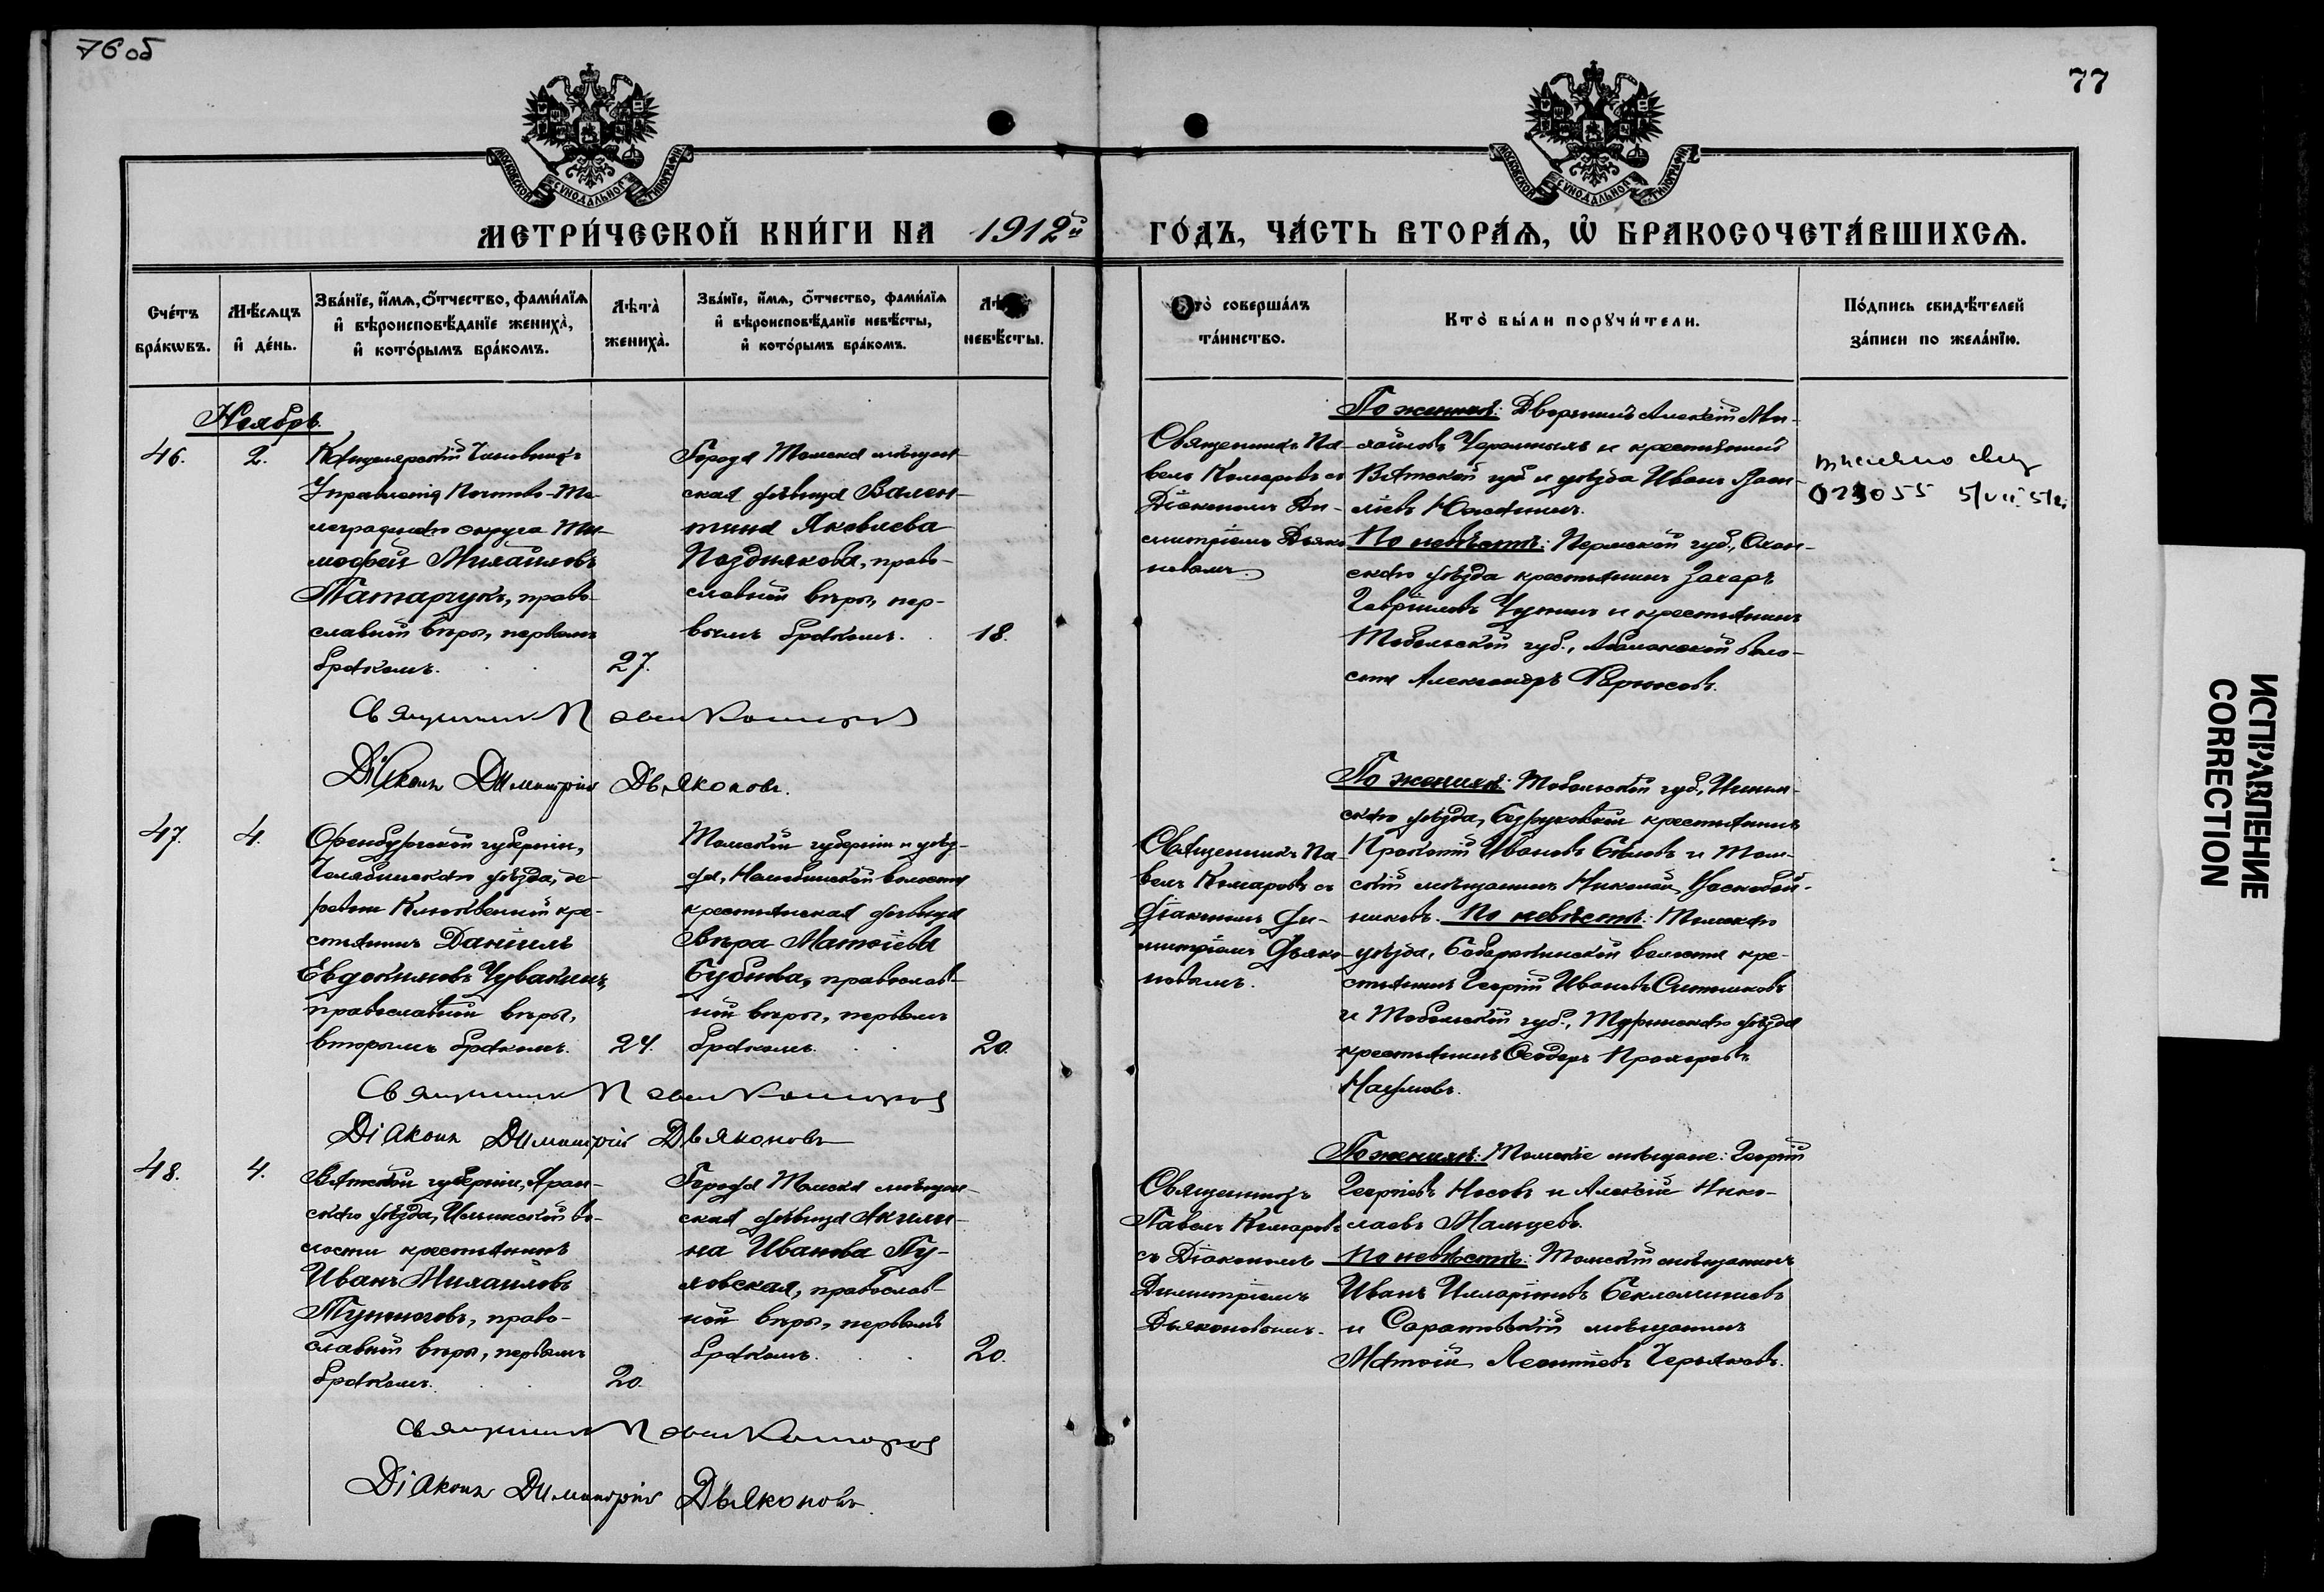 76 об
77
МОСКОВСКОЙ СѴНОДАЛЬНОЙ ТИПОГРАФІИ
МОСКОВСКОЙ СѴНОДАЛЬНОЙ ТИПОГРАФІИ
МЕТРИ́ЧЕСКОЙ КНИ́ГИ НА 1912й ГО́ДЪ, ЧА́СТЬ ВТОРА́Ѧ, Ѡ҆ БРАКОСОЧЕТА́ВШИХСѦ.
Сче́тъ бра́кѡвъ.
Мѣ́сѧцъ и҆ де́нь.
Зва́нїе, и҆́мѧ, ѻ҆́тчество, фами́лїѧ
и҆ вѣроисповѣ́данїе жениха̀,
и҆ кото́рымъ бра́комъ.
Лѣта̀ жениха̀.
Зва́нїе, и҆́мѧ, ѻ҆́тчество, фами́лїѧ
и҆ вѣроисповѣ́данїе невѣ́сты,
и҆ кото́рымъ бра́комъ.
невѣ́сты.
Кто̀ соверша́лъ
та́инство.
Кто̀ бы́ли порꙋчи́тели.
По́дпись свидѣ́телей
за́писи по жела́нїю.
Ноябрь.
46. 2.
Канцелярскій Чиновникъ
Управленія Почтово-Те-
леграфнаго округа Ти-
мофей Михайловъ
Татарчукъ, право-
славной вѣры, первымъ
бракомъ. 27.
Города Томска мѣщан-
ская дѣвица Вален-
тина Яковлева
Позднякова, право-
славной вѣры, пер-
вымъ бракомъ. 18.
Священникъ Па-
велъ Комаровъ съ
Діакономъ Ди-
митріемъ Дьяко-
новымъ.
По женихѣ: Дворянинъ Алексій Ми-
хайловъ и крестьянинъ
Вятской губ. и уѣзда Иванъ
По невѣстѣ: Пермской губ., Охан-
скаго уѣзда крестьянинъ Захаръ
Гавріиловъ и крестьянинъ
Тобольской губ., воло-
сти Александръ
023055
Священникъ Павелъ Комаровъ
Діаконъ Димитрій Дьяконовъ.
47. 4.
Оренбургской губерніи,
Челябинскаго уѣзда, де-
ревни Клюквенной кре-
стьянинъ Даніилъ
Евдокимовъ Чувакинъ,
православной вѣры,
вторымъ бракомъ. 24.
Томской губерніи и уѣз-
да, Нелюбинской волости
крестьянская дѣвица
Вѣра Матвіева
Бубнова, православ-
ной вѣры, первымъ
бракомъ. 20.
Священникъ Па-
велъ Комаровъ съ
Діакономъ Ди-
митріемъ Дьяко-
новымъ.
По женихѣ: Тобольской губ., Ишим-
скаго уѣзда, Безруковской крестьянинъ
Прокопій Ивановъ Бѣловъ и Том-
скій мѣщанинъ Николай
По невѣстѣ: Томскаго
уѣзда, волости кре-
стьянинъ Георгій Ивановъ Ситниковъ
и Тобольской губ., Туринскаго уѣзда
крестьянинъ Ѳеодоръ Прохоровъ
Наумовъ.
Священникъ Павелъ Комаровъ
Діаконъ Димитрій Дьяконовъ
48. 4.
Вятской губерніи, Яран-
скаго уѣзда, Ильинской во-
лости крестьянинъ
Иванъ Михайловъ
право-
славной вѣры, первымъ
бракомъ. 20.
Города Томска мѣщан-
ская дѣвица Акили-
на Иванова Пу-
ховская, православ-
ной вѣры, первымъ
бракомъ. 20.
Священникъ
Павелъ Комаровъ
съ Діакономъ
Димитріемъ
Дьяконовымъ.
По женихѣ: Томскіе мѣщане: Георгій
Георгіевъ Носовъ и Алексій Нико-
лаевъ Мальцевъ.
По невѣстѣ: Томскій мѣщанинъ
Иванъ Илларіоновъ Беклемишевъ
и Саратовскій мѣщанинъ
Матвій Леонтіевъ
Священникъ Павелъ Комаровъ
Діаконъ Димитрій Дьяконовъ.
ИСПРАВЛЕНИЕ
CORRECTION